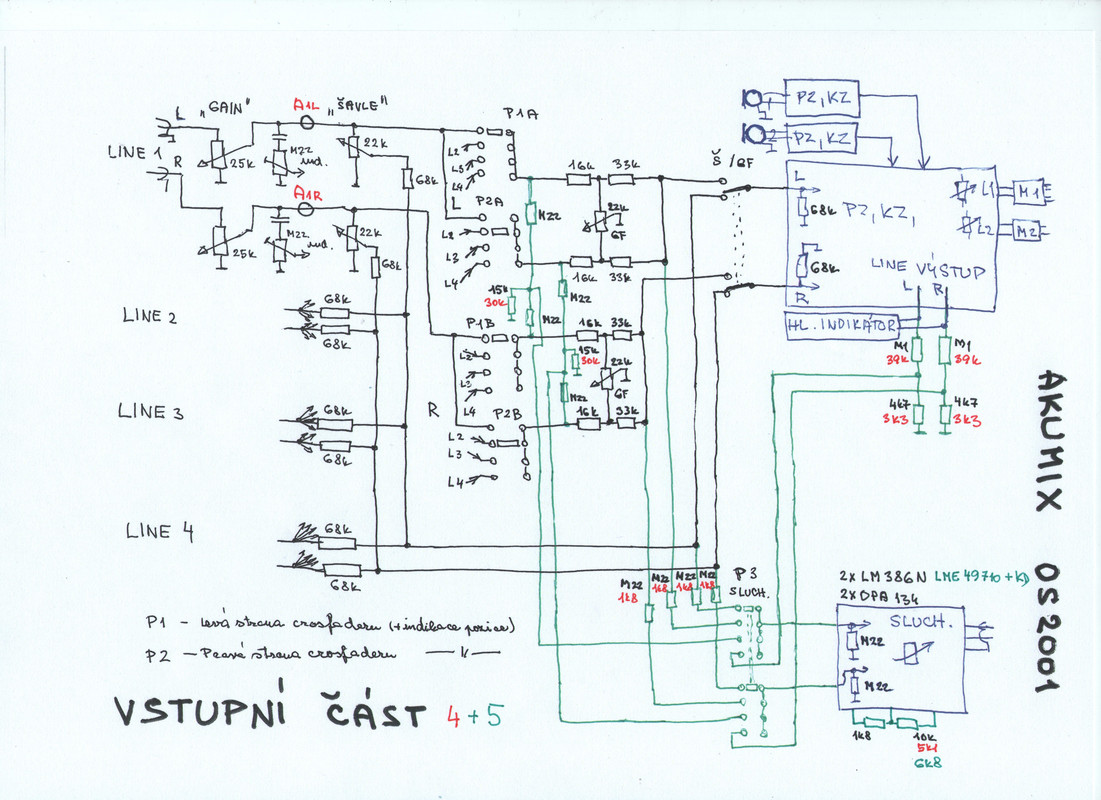 "GAIN"
A1L
"ŠAVLE"
P1A
L
LINE 1
R
25k
M22
ind.
22k
68k
L2
L3
L4
L
P2A
16k
33k
Š/GF
P2, KZ
P2, KZ
A1R
25k
M22
ind.
22k
68k
L2
L3
L4
M22
22k
GF
16k
33k
L
68k
P2, KZ,
68k
R
LINE VÝSTUP
L R
L1
M1
L2
M2
HL. INDIKÁTOR
15k
30k
M22
M22
LINE 2
68k
68k
P1B
L2
L3
L4
16k
33k
15k
30k
22k
GF
M22
16k
33k
M1
39k
M1
39k
4k7
3k3
4k7
3k3
LINE 3
68k
68k
R
P2B
L2
L3
L4
AKUMIX OS2001
LINE 4
68k
68k
M22
1k8
M22
1k8
M22
1k8
M22
1k8
P3
SLUCH.
2x LM386N LME49710 + KD
2x OPA 134
SLUCH.
M22
M22
1k8
10k
5k1
6k8
P1 - levá strana crosfaderu (+ indikace pozice)
P2 - Pravá strana crosfaderu —〃—
VSTUPNÍ ČÁST 4+5